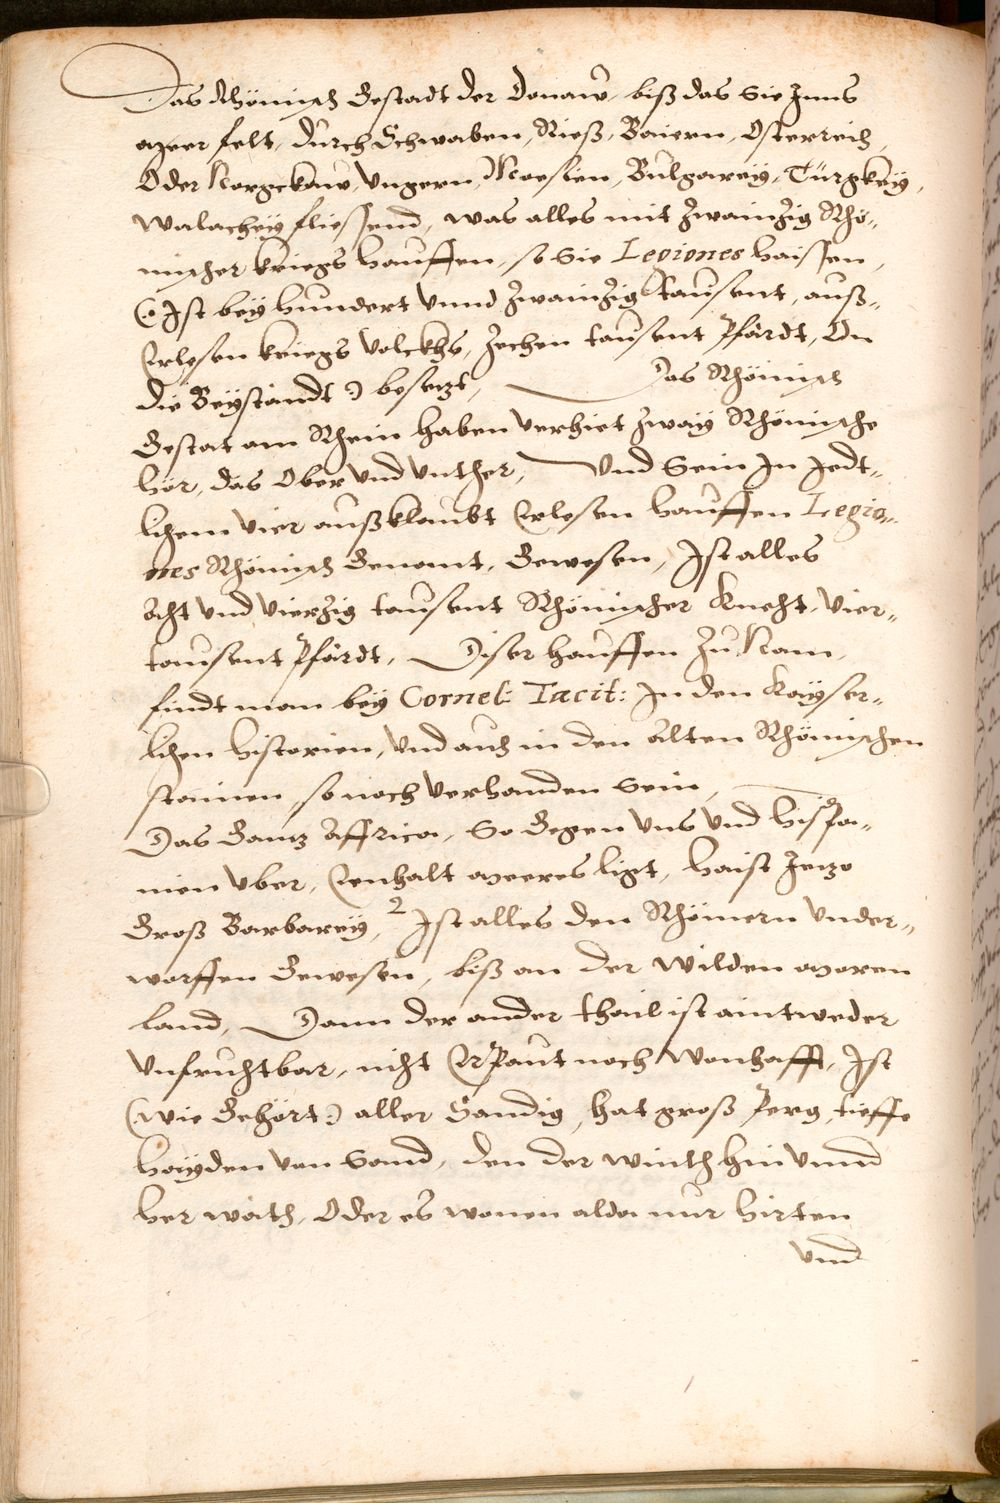 Das Rhömisch Gestadt der Donaw, biß das Sie Inns
meer felt, durch Schwaben, Rieß, Baiern, Osterreich,
Oder Norgckaw, Vngern, Moesien, Bulgarey, Türgkey,
Walachey fliessend, was alles mit Zwainzig Rhö„
mischer kriegs hauffen, so Sie Legiones haissen,
(: Ist bey hundert vnnd Zwainzig tausent, auß„
Erlesen kriegs volckhs, Zechen tausent Pfärdt, On
die Beyständt :) besetzt, Das Rhömisch
Gestat am Rhein haben verhiet Zway Rhömische
hör, das Ober vnd vnther, Vnd Sein In Jedt„
lichem vier außklaubt Erlesen hauffen Legio„
nes Rhömisch Genant, Gewesen, Ist alles
Acht vnd Vierzig tausent Rhömischer Knecht, Vier„
tausent Pfärdt, Diser hauffen Zu Nam,
findt man bey Cornel: Tacit: In den Kayser„
lichen historien, vnd auch in den alten Rhömischen
stainen, so noch verhanden Sein,
Das Gantz Affrica, So Gegen vns vnd hispa„
nien vber, Enhalt meeres ligt, haist Jetzo
Groß Barbarey, 2 Ist alles den Rhömern vnder„
worffen Gewesen, biß an der wilden moren
land, Dann der ander thail ist aintweder
vnfruchtbar, nicht Erpaut noch wonhafft, Ist
(wie Gehört :) aller Sandig, hat groß Perg, tieffe
hayden von Sand, den der winth hin vnnd
her wäth, Oder es wonen alda nur hirten
vnd